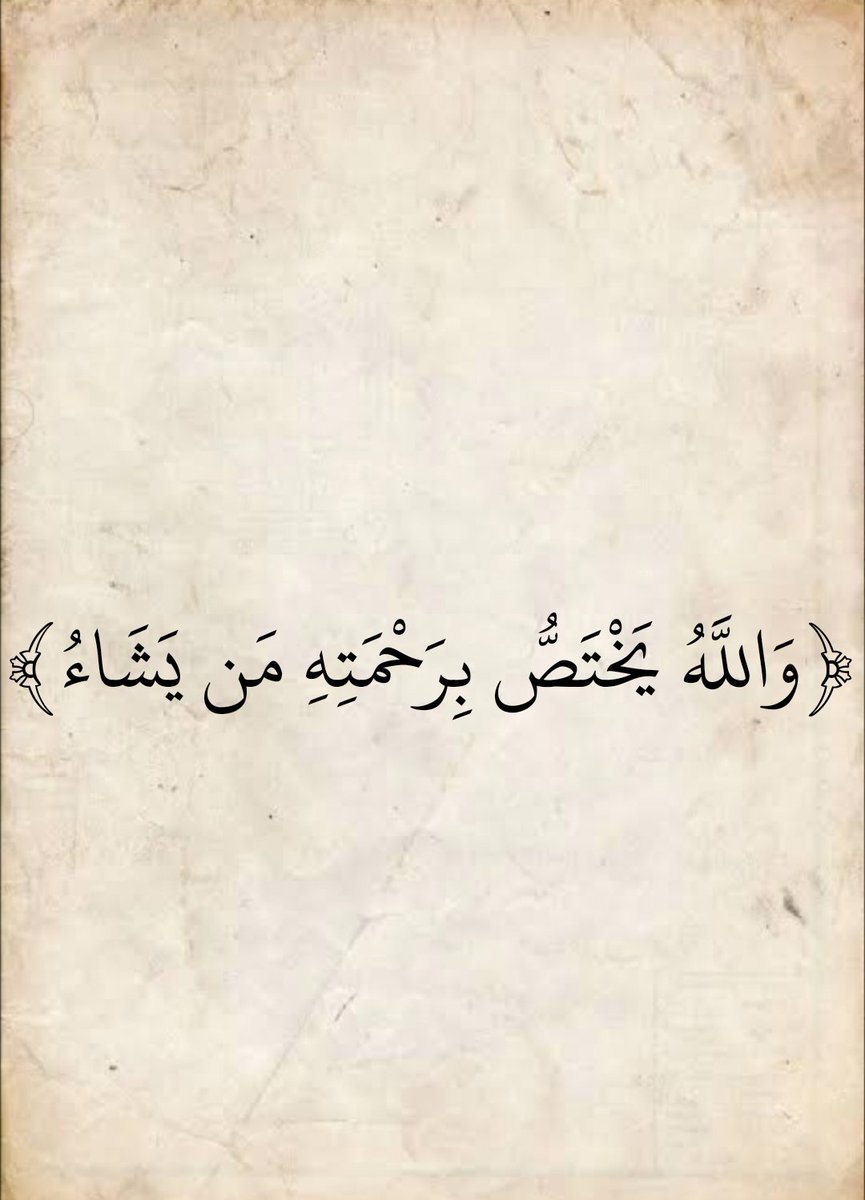 ﴿وَاللَّهُ يَخْتَصُّ بِرَحْمَتِهِ مَن يَشَاءُ﴾